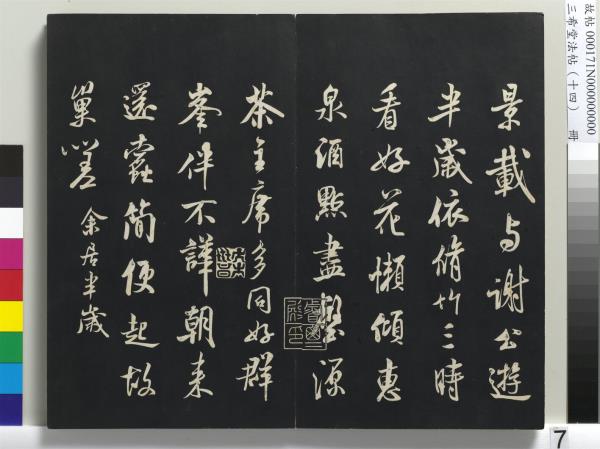 景載与謝公遊
半歲依脩竹三時
看好花懶傾惠
泉酒點盡壑源
茶主席多同好群
峯伴不譁朝来
還蠹簡便起故
巢嗟 余居半歲
故帖 000171N000000000
三希堂法帖（十四） 冊
7